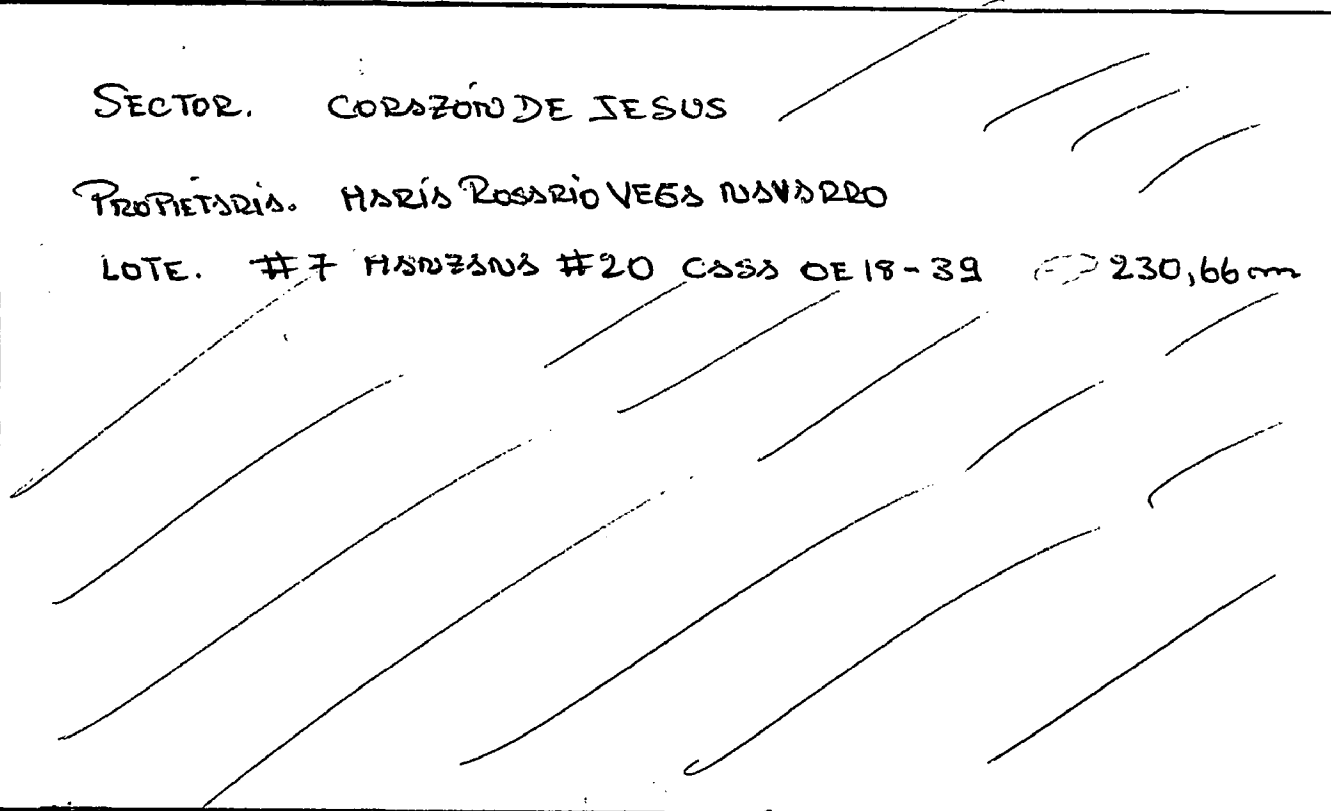 SECTOR. CORAZÓN DE JESUS
PROPIETARIA. MARÍA ROSARIO VEGA NAVARRO
LOTE. #7 MANZANA #20 CASA OE18-39 230,66 m